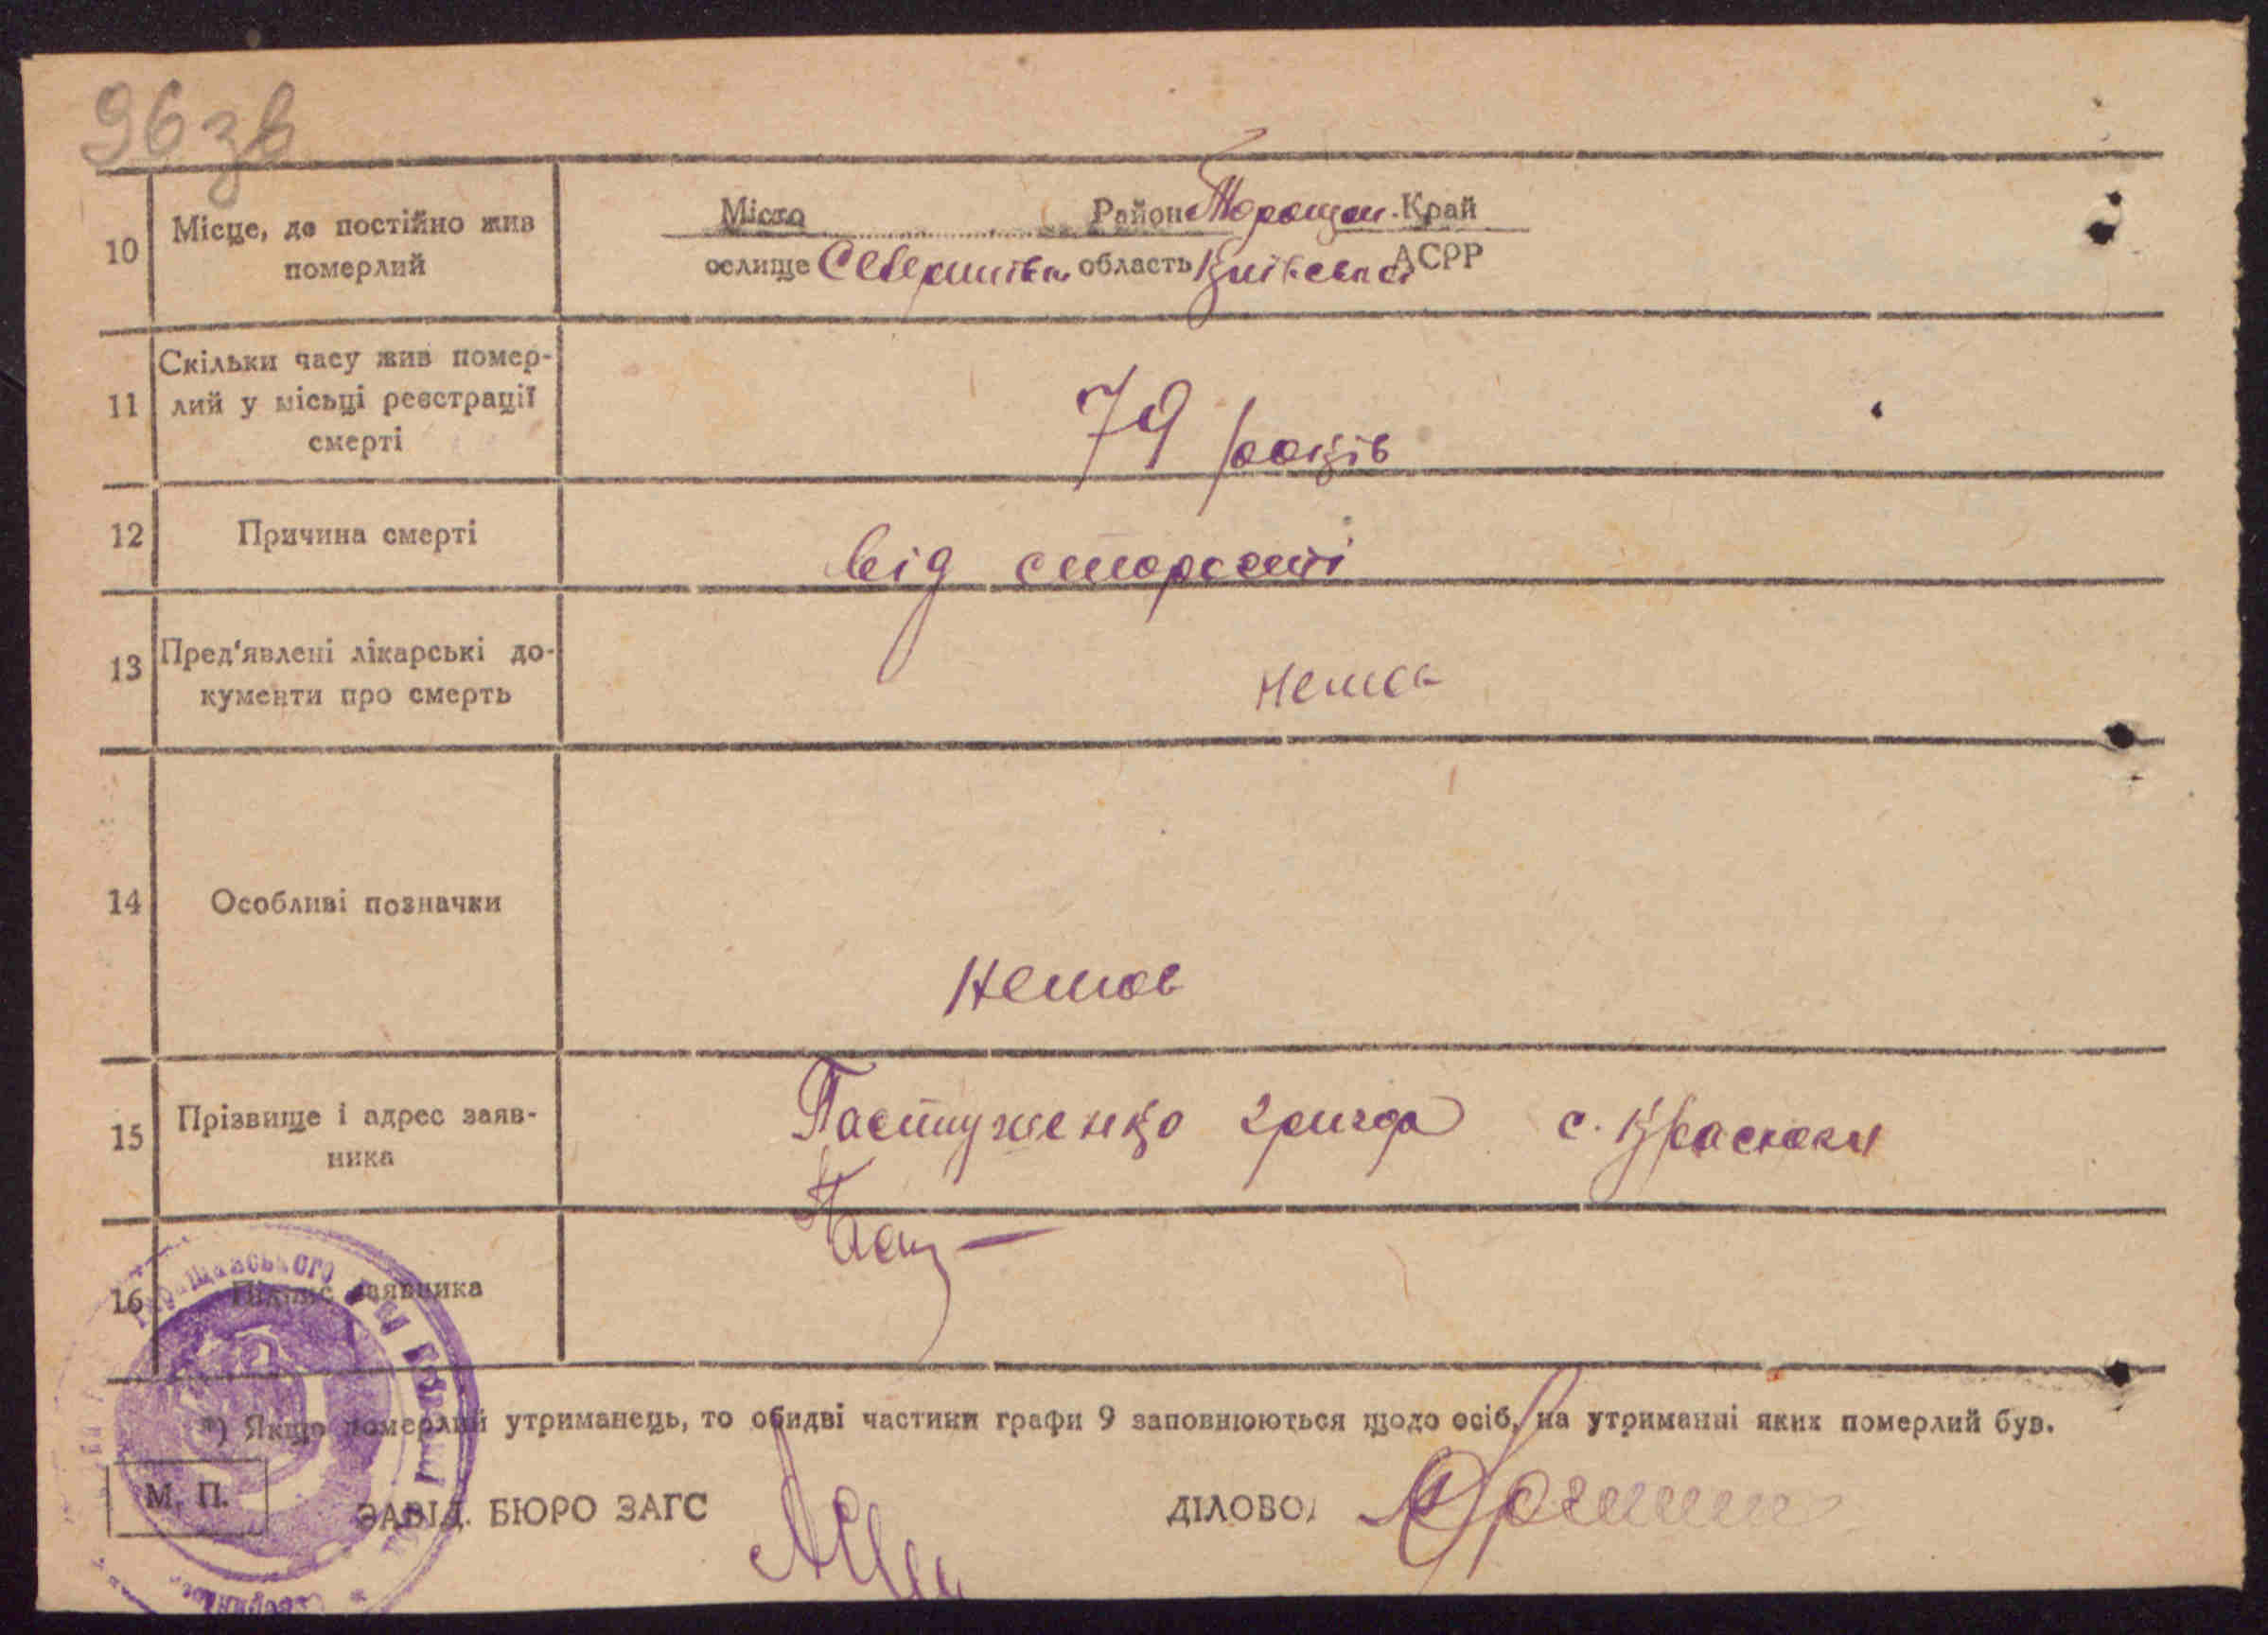 96 зв
10 Місце, де постійно жив померлий
Місто Район Таращан. Край
оселище Северинівка область Київська АСРР
11 Скільки часу жив помер-
лий у місьці реєстрації
смерті
79 років
12 Причина смерті
від старості
13 Пред'явлені лікарські до-
кументи про смерть
немає
14 Особливі позначки
немає
15 Прізвище і адрес заяв-
ника
Пастушенко с.
16 Підпис заявника
Паст
*) Якщо померлий утриманець, то обидві частини графи 9 заповнюються щодо осіб, на утриманні яких померлий був.
М. П.
ЗАВІД. БЮРО ЗАГС
ДІЛОВОД